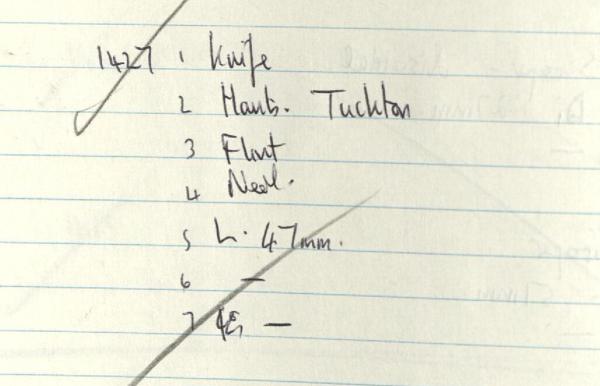 1427 1 Knife
2 Hants. Tuckton
3 Flint
4 Neol.
5 L. 47mm.
6 —
7 —